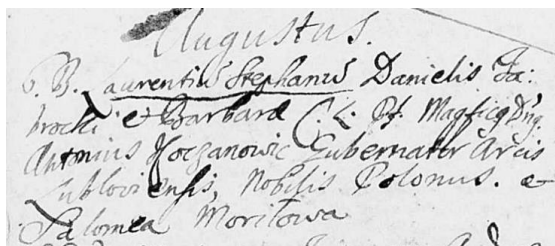 Augustus.
6. B. Laurentius Stephanus Danielis Ja:
brocki et Barbara C. L. Pt. Magficq Dng
Antonius Koczanowic Gubernator Arcis
Lubloviensis, Nobilis Polonus. e
Salomea Moritowa